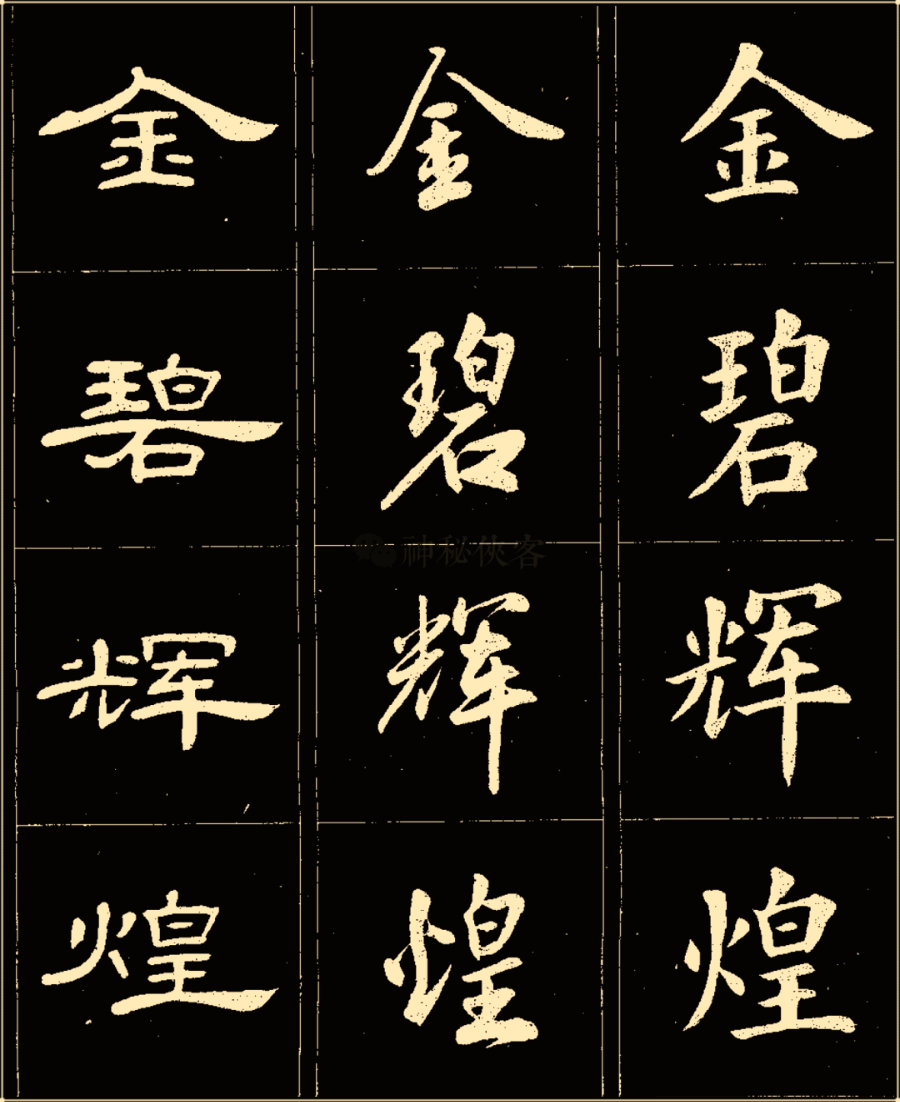 金碧辉煌
金碧辉煌
金碧辉煌
神秘侠客